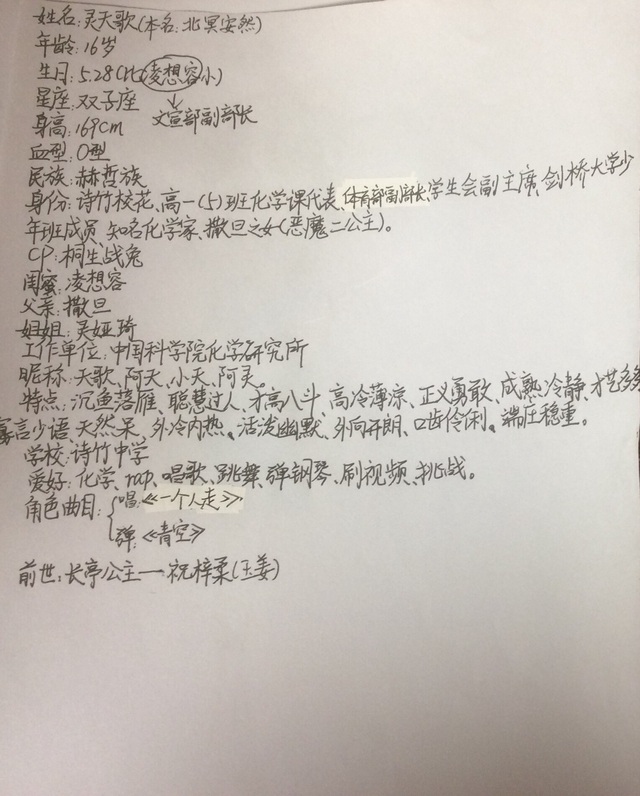 姓名:灵天歌(本名:北冥安然)
年龄:16岁
生日:5.28(比凌想容小)
星座:双子座
文宣部副部长
身高:169cm
血型:O型
民族:赫哲族
身份:诗竹校花、高一(5)班化学课代表、体育部副部长、学生会副主席、剑桥大学少
年班成员、知名化学家、撒旦之女(恶魔二公主)。
CP:桐生战兔
闺蜜:凌想容
父亲:撒旦
姐姐:吴娅琦
工作单位:中国科学院化学研究所
昵称:天歌、阿天、小天、阿灵。
特点:沉鱼落雁、聪慧过人、才高八斗、高冷薄凉、正义勇敢、成熟冷静、才艺多
寡言少语、天然呆、外冷内热、活泼幽默、外向开朗、口齿伶俐、端庄稳重。
学校:诗竹中学
爱好:化学、rap、唱歌、跳舞、弹钢琴、刷视频、挑战。
角色曲目:唱:《一个人走》
弹:《青空》
前世:长亭公主一祝梓柔(玉姜)